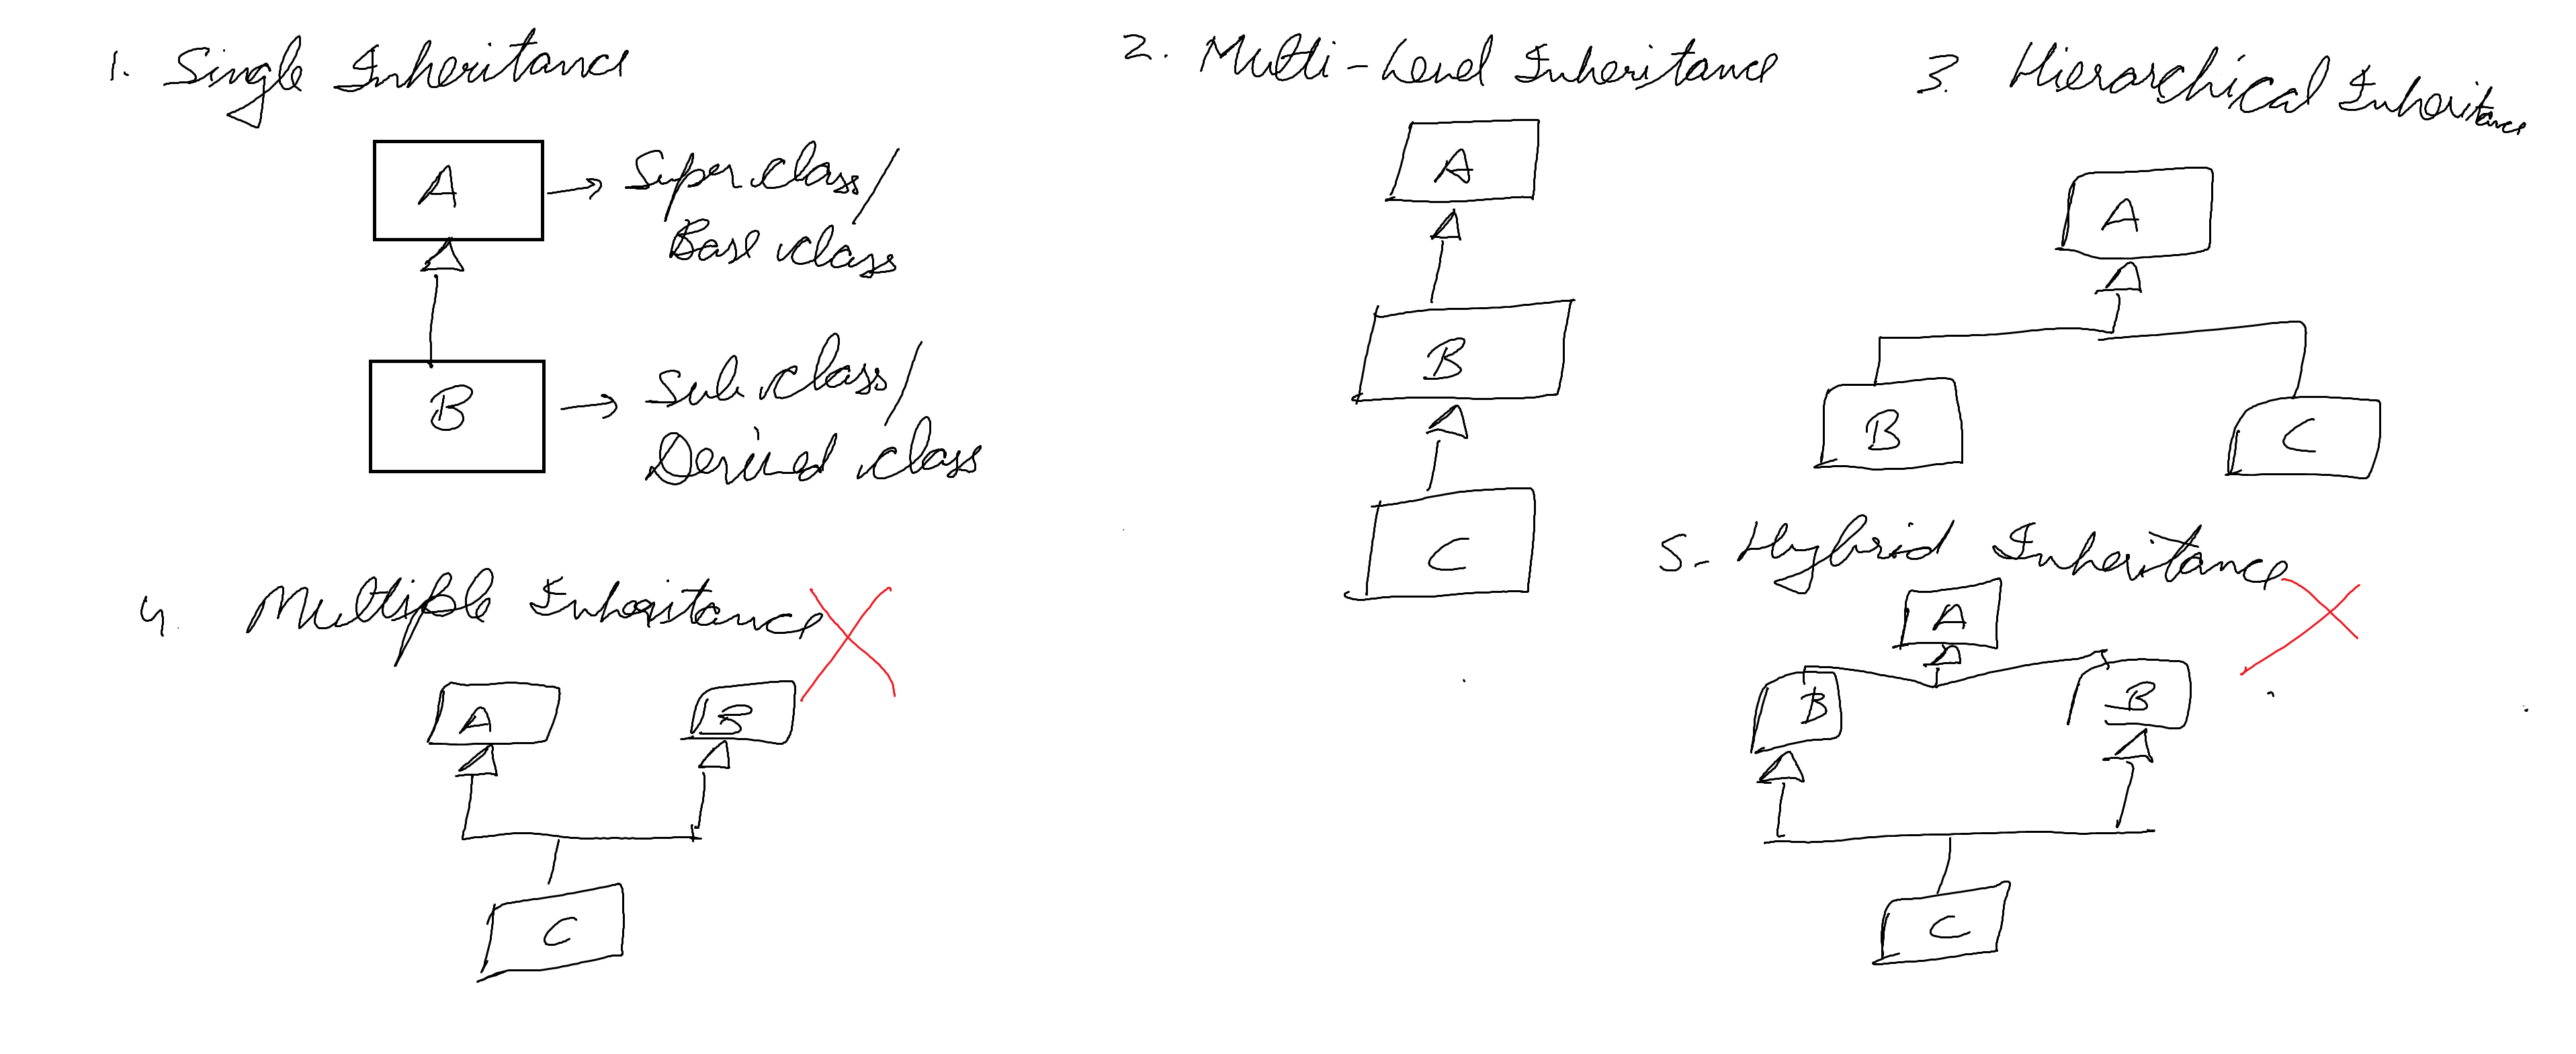 1. Single Inheritance
A → Super class/
Base class
B → Sub class/
Derived class
2. Multi-Level Inheritance
A
B
C
3. Hierarchical Inheritance
A
B C
4. Multiple Inheritance
A B
C
5. Hybrid Inheritance
A
B B
C